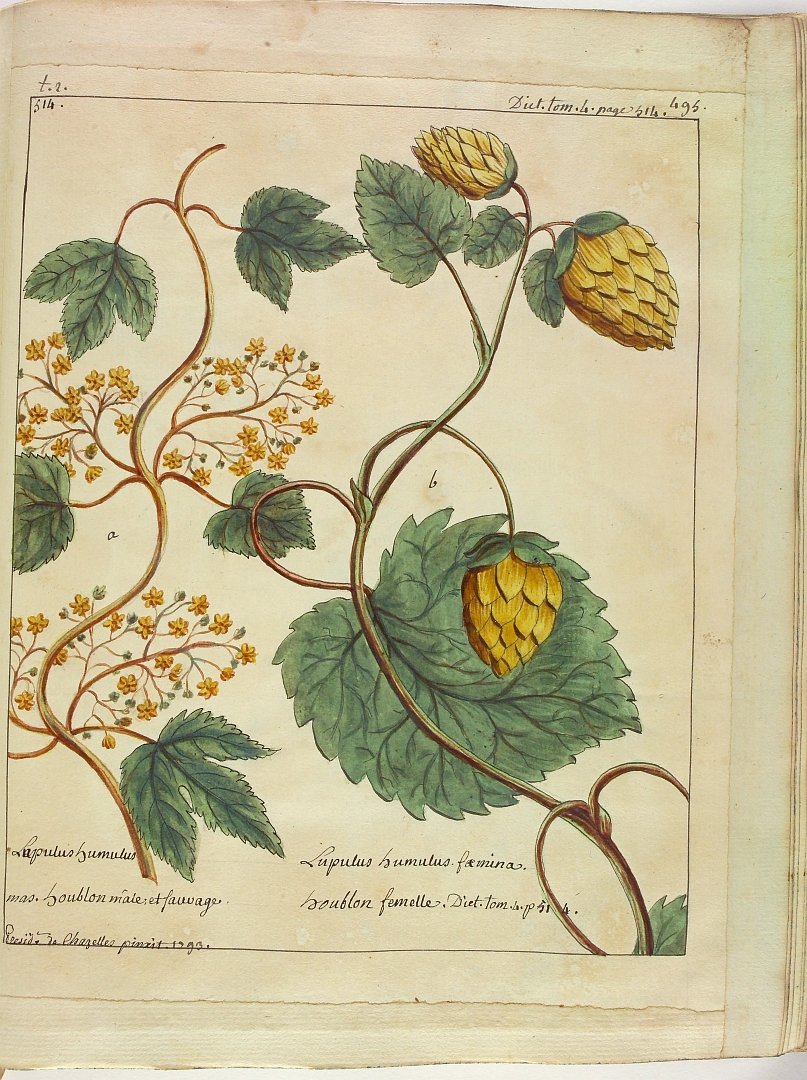 t. 2.
514.
Dict. tom. 4. page 514. 495.
a
b
Lupulus humulus
mas. houblon mâle, et sauvage.
Lupulus humulus fæmina.
houblon femelle. Dict. tom. 4. p 514.
Presid. de Chazelles pinxit 1793.